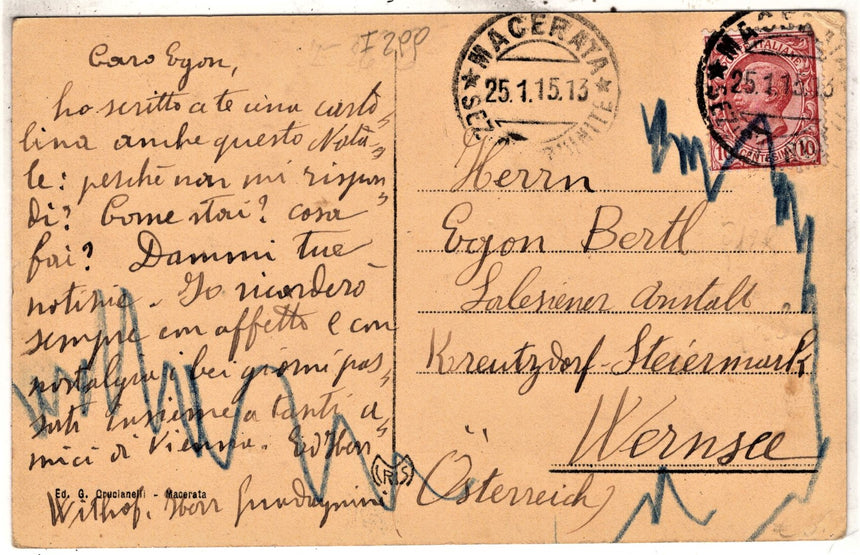 Caro Egon,
ho scritto a te una carto
lina anche questo Nata-
le: perchè non mi rispon
di? Come stai? cosa
fai? Dammi tue
notizie. Io ricorderò
sempre con affetto e con
nostalgia i bei giorni pas-
sati insieme a tanti a-
mici di Vienna. Ed Herr
Ed. G. Crucianelli - Macerata
Withof. Herr
MACERATA
25.1.15.13
MACERATA
25.1.15.13
10 CENTESIMI 10
Herrn
Egon Bertl
Salesiener Anstalt
Kreutzdorf-Steiermark
Wernsee
Österreich